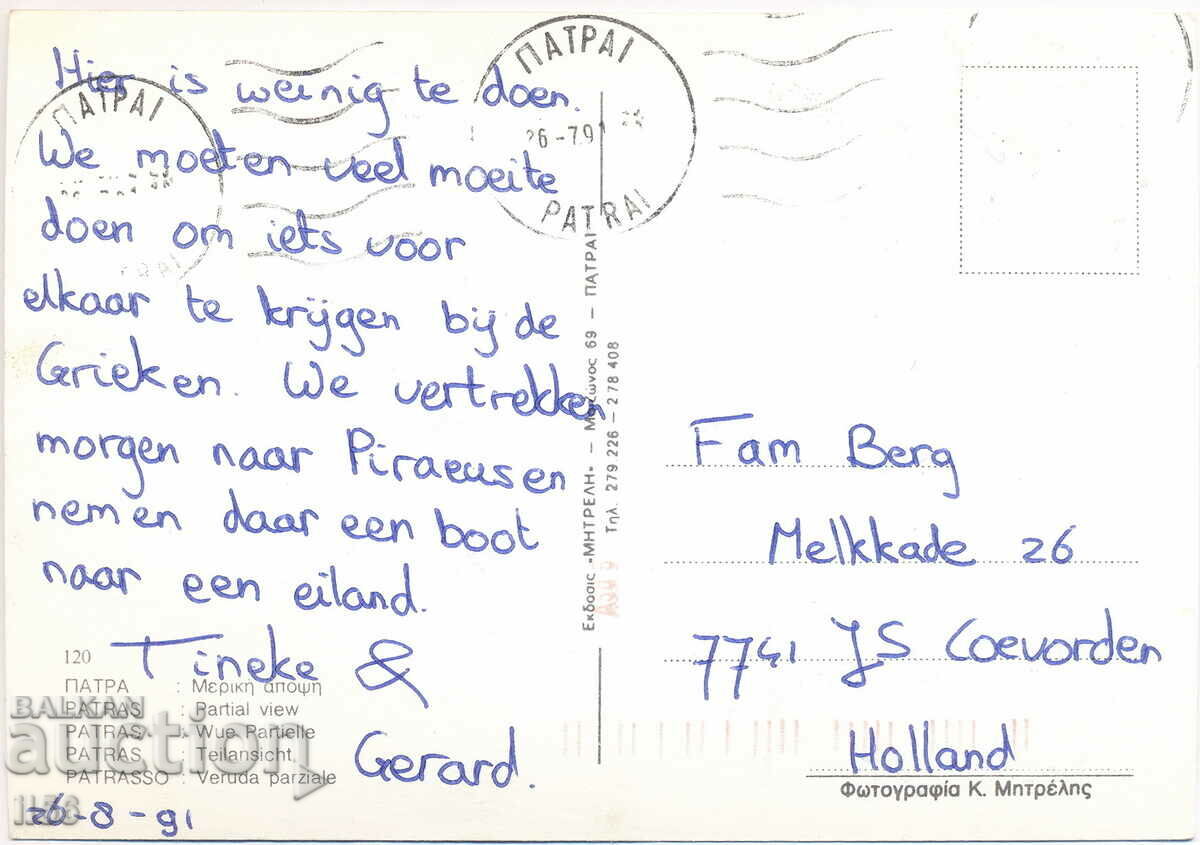 Hier is weinig te doen.
We moeten veel moeite
doen om iets voor
elkaar te krijgen bij de
Grieken. We vertrekken
morgen naar Piraeus en
nemen daar een boot
naar een eiland.
Tineke &
Gerard.
26-8-91
120
ΠΑΤΡΑ : Μερική άποψη
PATRAS : Partial view
PATRAS : Wue Partielle
PATRAS : Teilansicht
PATRASSO : Veruda parziale
BALKAN
auction
ΠΑΤΡΑΙ
ΠΑΤΡΑΙ
26-7 91
PATRAI
Εκδοσις «ΜΗΤΡΕΛΗ» — 69 — ΠΑΤΡΑΙ
Τηλ. 279 226 — 278 408
Fam Berg
Melkkade 26
7741 JS Coevorden
Holland
Φωτογραφία Κ. Μητρέλης